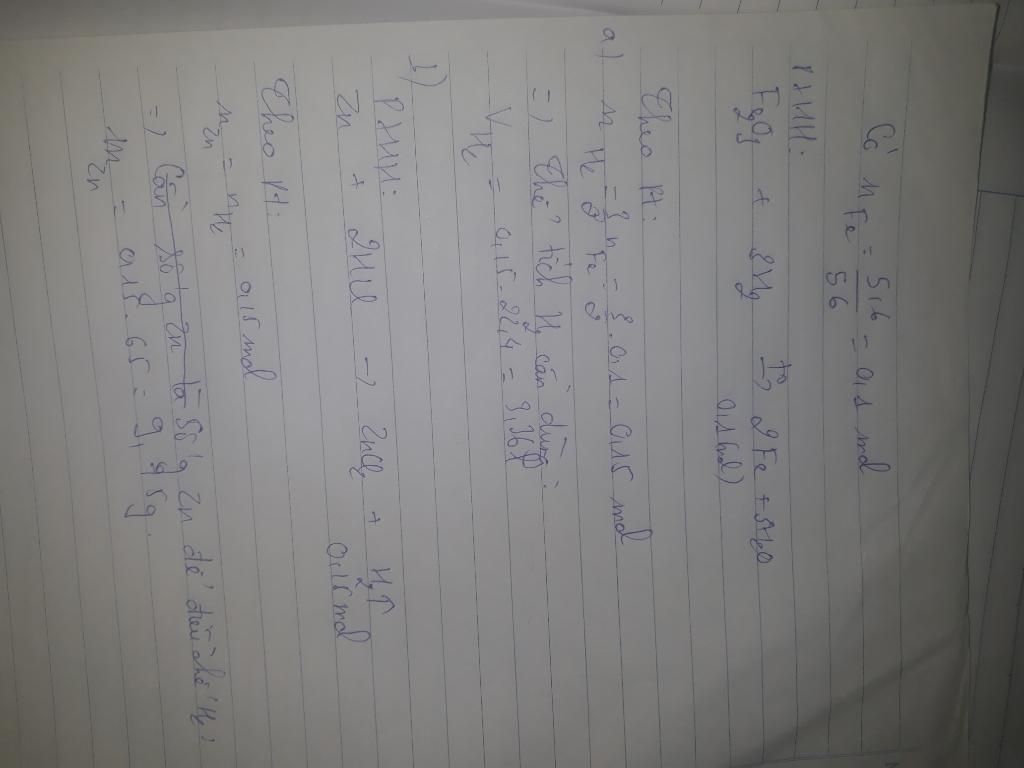 Có n Fe = 5,6 / 56 = 0,1 mol
PTHH:
Fe2O3 + 3H2 t°→ 2Fe + 3H2O
0,1 (mol)
Theo Pt:
a) n H2 = 3/2 n Fe = 3/2 . 0,1 = 0,15 mol
=) Thể tích H2 cần dùng:
V H2 = 0,15 . 22,4 = 3,36 l
b)
PTHH:
Zn + 2HCl -> ZnCl2 + H2↑
0,15 mol
Theo Pt:
n Zn = n H2 = 0,15 mol
=) Cần số g Zn là Số g Zn để điều chế H2:
m Zn = 0,15 . 65 = 9,75g.